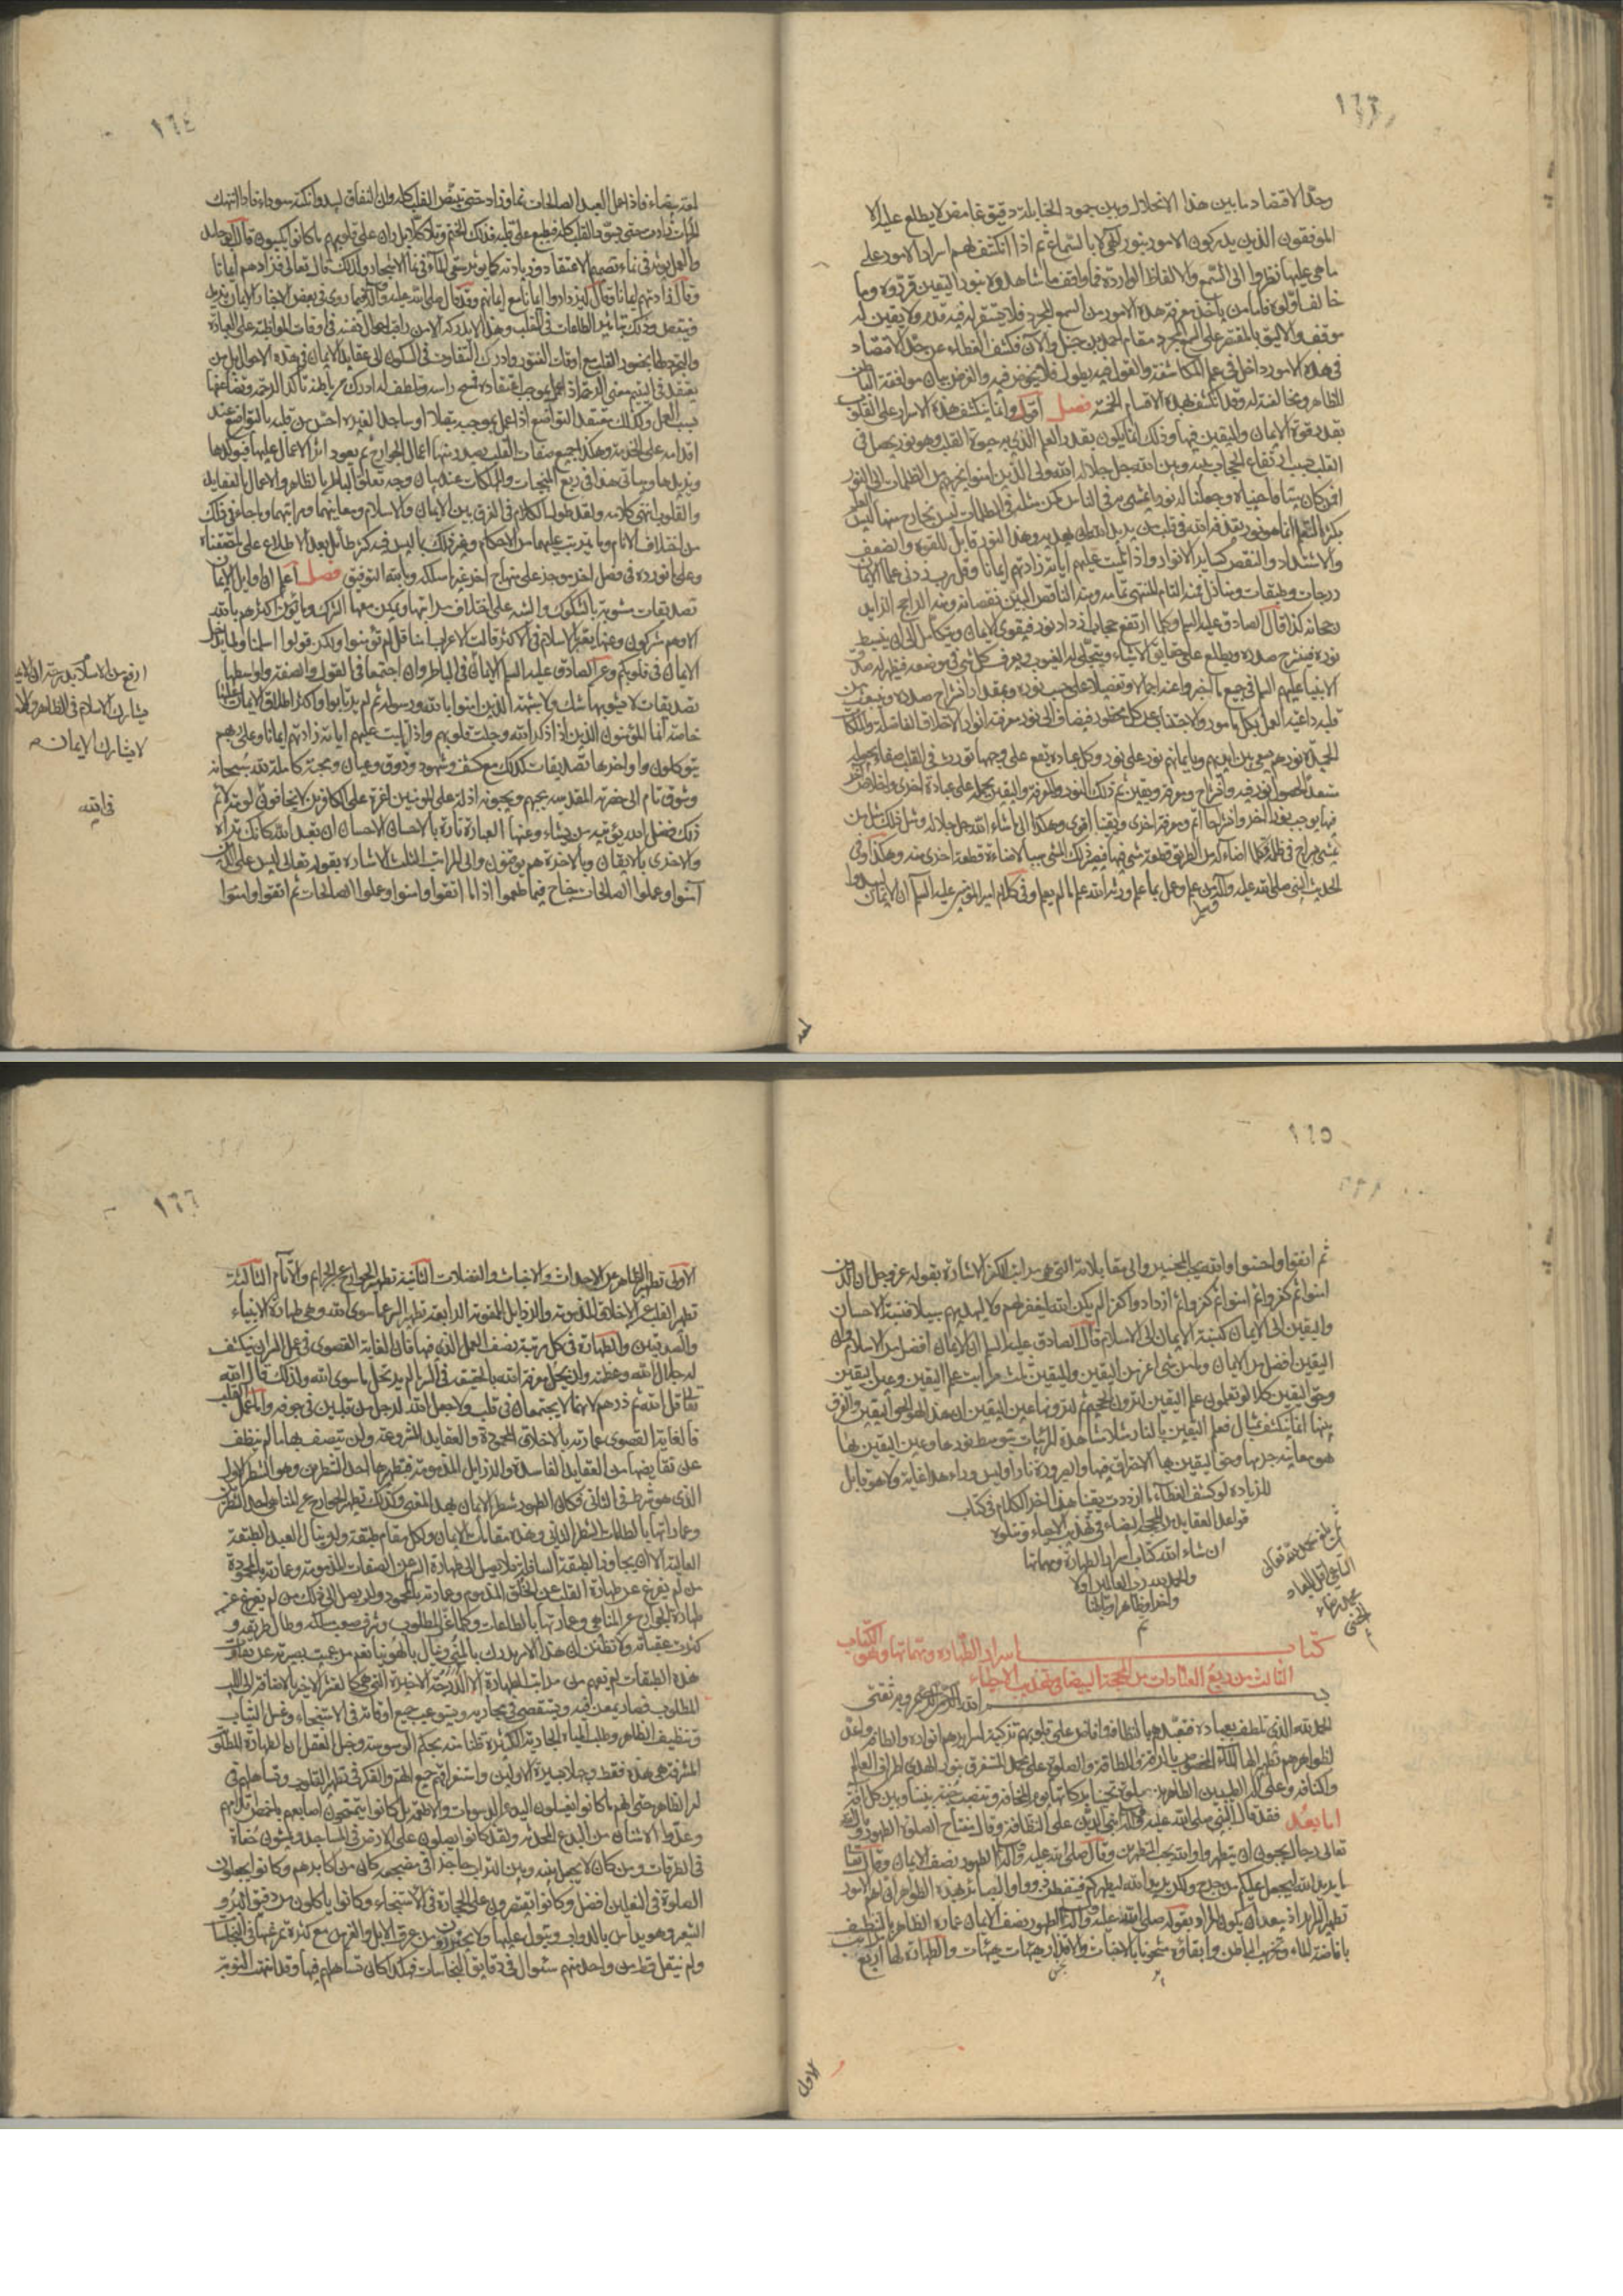 ١٦٣
وحد الاقتصاد ما بين هذا الانحلال وبين جمود الحنابلة دقيق غامض لا يطلع عليه الا
الموفقون الذين يدركون الامور بنور الهي لا بالسماع ثم اذا انكشف لهم اسرار الامور على
ما هي عليها نظروا الى السمع والالفاظ الواردة فما وافق ما شاهدوه بنور اليقين قرروه وما
خالف اولوه فاما من يأخذ معرفة هذه الامور من السمع المجرد فلا يستقر له فيه قدم ولا يتعين له
موقف والاليق بالمقتصر على السمع المجرد مقام احمد بن حنبل والآن فكشف الغطاء عن حد الاقتصاد
في هذه الامور داخل في علم المكاشفة والقول فيه يطول فلا نخوض فيه والغرض بيان موافقة الباطن
للظاهر ومخالفته له وقد انكشف بهذه الاقسام الخمسة فصل اقول وانما ينكشف هذه الاسرار على القلوب
بقدر قوة الايمان واليقين فيها وذلك انما يكون بقدر العلم الذي به حيوة القلب وهو نور يحصل في
القلب بسبب ارتفاع الحجاب بينه وبين الله جل جلاله الله ولي الذين امنوا يخرجهم من الظلمات الى النور
افمن كان ميتا فاحييناه وجعلنا له نورا يمشي به في الناس كمن مثله في الظلمات ليس بخارج منها ليس العلم
بكثرة التعلم انما هو نور يقذفه الله في قلب من يريد الله ان يهديه وهذا النور قابل للقوة والضعف
والاشتداد والنقص كساير الانوار واذا تليت عليهم اياته زادتهم ايمانا وقل رب زدني علما الايمان
درجات وطبقات ومنازل فمنه التام المنتهي تمامه ومنه الناقص البين نقصانه ومنه الراجح الزايد
رجحانه كذا قال الصادق عليه السلم وكلما ارتفع حجاب ازداد نور فيقوى الايمان ويتكامل الى ان ينبسط
نوره فينشرح صدره ويطلع على حقايق الاشياء ويتجلى له الغيوب ويعرف كل شيء في موضعه فيظهر له صدق
الانبياء عليهم السلم في جميع ما اخبروا عنه اجمالا وتفصيلا على حسب نوره وبمقدار انشراح صدره وينبعث من
قلبه داعية العمل بكل مامور والاجتناب عن كل محظور فيضاف الى نور معرفته انوار الاخلاق الفاضلة والملكات
الحميدة نورهم يسعى بين ايديهم وبايمانهم نور على نور وكل عبادة تقع على وجهها تورث في القلب صفاء يجعله
مستعدا لحصول نور فيه وانشراح ومعرفة ويقين ثم ذلك النور والمعرفة واليقين يحمله على عبادة اخرى واخلاص اخر
فيها يوجب نورا اخر وانشراحا اتم ومعرفة اخرى ويقينا اقوى وهكذا الى ما شاء الله جل جلاله ومثل ذلك مثل من
يمشي بسراج في ظلمة فكلما اضاء له من الطريق قطعة مشى فيها فيصير ذلك المشي سببا لاضاءة قطعة اخرى منه وهكذا وفي
الحديث النبي صلى الله عليه وآله من علم وعمل بما علم ورثه الله علم ما لم يعلم وفي كلام امير المؤمنين عليه السلم ان الايمان ليبدو
لمعة
١٦٤
لمعة بيضاء فاذا عمل العبد الصالحات نما وزاد حتى يبيض القلب كله وان النفاق ليبدو نكتة سوداء فاذا انتهك
المحرمات زادت حتى يسود القلب كله فيطبع على قلبه فذلك الختم وتلا كلا بل ران على قلوبهم ما كانوا يكسبون قال ابو حامد
والعمل يؤثر في نماء تصميم الاعتقاد وزيادته كما يؤثر سقي الماء في نماء الاشجار ولذلك قال تعالى فزادهم ايمانا
وقال فزادتهم ايمانا وقال ليزدادوا ايمانا مع ايمانهم وقد قال صلى الله عليه وآله فيما روي في بعض الاخبار الايمان يزيد
وينقص وذلك بتاثير الطاعات في القلب وهذا لا يدركه الا من راقب احوال نفسه في اوقات المواظبة على العبادة
والتجرد لها بحضور القلب مع اوقات الفتور وادرك التفاوت في السكون الى عقايد الايمان في هذه الاحوال بل من
يعتقد في اليتيم معنى الرحمة اذا عمل بموجب اعتقاده فمسح راسه وتلطف له ادرك من باطنه تأكد الرحمة وتضاعفها
بسبب العمل وكذلك معتقد التواضع اذا عمل بموجبه مقبلا او ساجدا لغيره احس من قلبه بالتواضع عند
اقدامه على الخدمة وهكذا جميع صفات القلب يصدر منها اعمال الجوارح ثم يعود اثر الاعمال عليها فيؤكدها
ويزيدها وسيأتي هذا في ربع المنجيات والمهلكات عند بيان وجه تعلق الباطن بالظاهر والاعمال بالعقايد
والقلوب انتهى كلامه ولقد طول الكلام في الفرق بين الايمان والاسلام ومعانيهما ومراتبهما وما جاء في ذلك
من اختلاف الانام وما يترتب عليهما من الاحكام وغير ذلك مما ليس فيه كثير طائل بعد الاطلاع على ما حققناه
وعلى ما نورده في فصل اخر موجز على منهاج اخر غير ما سلكه وبالله التوفيق فصل اعلم ان اوايل الايمان
تصديقات مشوبة بالشكوك والشبه على اختلاف مراتبها ويمكن معها الشرك وما يؤمن اكثرهم بالله
الا وهم مشركون وعنها يعبر بالاسلام في الاكثر قالت الاعراب امنا قل لم تؤمنوا ولكن قولوا اسلمنا ولما يدخل
الايمان في قلوبكم وعن الصادق عليه السلم الايمان في الباطن وان اجتمعا في القول والصفة واواسطها
تصديقات لا يشوبها شك ولا شبهة الذين امنوا بالله ورسوله ثم لم يرتابوا واكثر اطلاق الايمان عليها
خاصة انما المؤمنون الذين اذا ذكر الله وجلت قلوبهم واذا تليت عليهم اياته زادتهم ايمانا وعلى ربهم
يتوكلون واواخرها تصديقات كذلك مع كشف وشهود وذوق وعيان ومحبة كاملة لله سبحانه
وشوق تام الى حضرته المقدسة يحبهم ويحبونه اذلة على المؤمنين اعزة على الكافرين لا يخافون لومة لائم
ذلك فضل الله يؤتيه من يشاء وعنها العبارة تارة بالاحسان الاحسان ان تعبد الله كانك تراه
والاخرى بالايقان وبالاخرة هم يوقنون والى المراتب الثلث الاشارة بقوله تعالى ليس على الذين
آمنوا وعملوا الصالحات جناح فيما طعموا اذا ما اتقوا وآمنوا وعملوا الصالحات ثم اتقوا وآمنوا
ارفع من الاسلام بدرجة ان الايمان
يشارك الاسلام في الظاهر والاسلام
لا يشارك الايمان
١٦٥
ثم اتقوا واحسنوا والله يحب المحسنين والى مقابلاته التي هي مراتب الكفر الاشارة بقوله عز وجل ان الذين
امنوا ثم كفروا ثم امنوا ثم كفروا ثم ازدادوا كفرا لم يكن الله ليغفر لهم ولا ليهديهم سبيلا فنسبة الاحسان
واليقين الى الايمان كنسبة الايمان الى الاسلام قال الصادق عليه السلم ان الايمان افضل من الاسلام وان
اليقين افضل من الايمان وما من شيء اعز من اليقين ولليقين ثلث مراتب علم اليقين وعين اليقين
وحق اليقين كلا لو تعلمون علم اليقين لترون الجحيم ثم لترونها عين اليقين ان هذا لهو حق اليقين والفرق
بينها انما ينكشف بمثال فعلم اليقين بالنار مثلا مشاهدة المرئيات بتوسط نورها وعين اليقين بها
هو معاينة جرمها وحق اليقين بها الاحتراق فيها والصيرورة نارا وليس وراء هذا غاية ولا هو قابل
للزيادة لو كشف الغطاء ما ازددت يقينا هذا اخر الكلام في كتاب
قواعد العقايد من المحجة البيضاء في تهذيب الاحياء ويتلوه
ان شاء الله كتاب اسرار الطهارة ومهماتها
والحمد لله رب العالمين اولا
واخرا وظاهرا وباطنا
تم
كتاب اسرار الطهارة ومهماتها وهو الكتاب
الثالث من ربع العبادات من المحجة البيضاء في تهذيب الاحياء
بسم الله الرحمن الرحيم وبه ثقتي
الحمد لله الذي تلطف بعباده فتعبدهم بالنظافة وافاض على قلوبهم تزكية لسرايرهم انواره والطافه واعد
لظواهرهم تطهيرا لها الماء المخصوص بالرقة واللطافة والصلوة على محمد المستغرق بنور الهدى اطراف العالم
واكنافه وعلى آله الطيبين الطاهرين صلوة تحمينا بركاتها يوم المخافة وتنتصب جنة بيننا وبين كل آفة
اما بعد فقد قال النبي صلى الله عليه وآله بني الدين على النظافة وقال مفتاح الصلوة الطهور وقال الله
تعالى رجال يحبون ان يتطهروا والله يحب المطهرين وقال صلى الله عليه وآله الطهور نصف الايمان وقال تعالى
ما يريد الله ليجعل عليكم من حرج ولكن يريد ليطهركم فيتفطن ذووا البصائر بهذه الظواهر ان اهم الامور
تطهير السراير اذ يبعد ان يكون المراد بقوله صلى الله عليه وآله الطهور نصف الايمان عمارة الظاهر بالتنظيف
بافاضة الماء وتخريب الباطن وابقاؤه مشحونا بالاخباث والاقذار هيهات هيهات والطهارة لها اربع مراتب
الاولى
١٦٦
الاولى تطهير الظاهر من الاحداث والاخباث والفضلات الثانية تطهير الجوارح عن الجرائم والآثام الثالثة
تطهير القلب عن الاخلاق المذمومة والرذايل الممقوتة الرابعة تطهير السر عما سوى الله وهي طهارة الانبياء
والصديقين والطهارة في كل مرتبة نصف العمل الذي فيها فان الغاية القصوى في عمل السر ان ينكشف
له جلال الله وعظمته ولن يحل معرفة الله بالحقيقة في السر ما لم يرتحل ما سوى الله ولذلك قال الله
تعالى قل الله ثم ذرهم لانهما لا يجتمعان في قلب وما جعل الله لرجل من قلبين في جوفه واما عمل القلب
فالغاية القصوى عمارته بالاخلاق المحمودة والعقايد المشروعة ولن يتصف بها ما لم ينظف
عن نقايضها من العقايد الفاسدة والرذايل المذمومة فتطهيرها احد الشطرين وهو الشطر الاول
الذي هو شرط في الثاني فكان الطهور شطر الايمان بهذا المعنى وكذلك تطهير الجوارح عن المناهي احد الشطرين
وعمارتها بالطاعات الشطر الثاني وهذه مقامات الايمان ولكل مقام طبقة ولن ينال العبد الطبقة
العالية الا ان يجاوز الطبقة السافلة فلا يصل الى طهارة السر عن الصفات المذمومة وعمارته بالمحمودة
من لم يفرغ عن طهارة القلب عن الخلق المذموم وعمارته بالمحمود ولن يصل الى ذلك من لم يفرغ عن
طهارة الجوارح عن المناهي وعمارتها بالطاعات وكلما عز المطلوب وشرف صعب مسلكه وطال طريقه و
كثرت عقباته ولا تظنن ان هذا الامر يدرك بالمنى وينال بالهوينا نعم من عميت بصيرته عن تفاوت
هذه الطبقات لم يفهم من مراتب الطهارة الا الدرجة الاخيرة التي هي كالقشر الاخير بالاضافة الى اللب
المطلوب فصار يمعن فيه ويستقصي في مجاريه ويستوعب جميع اوقاته في الاستنجاء وغسل الثياب
وتنظيف الظاهر وطلب المياه الجارية الكثيرة ظنا منه بحكم الوسوسة وخبل العقل ان الطهارة المطلوبة
المشرفة هي هذه فقط وجهلا بسيرة الاولين واستغراقهم جميع الهم والفكر في تطهير القلوب وتساهلهم في
امر الظاهر حتى انهم ما كانوا يغسلون اليد من الدسومات والاطعمة بل كانوا يتمسحون اصابعهم باخمص اقدامهم
وعدوا الاشنان من البدع المحدثة ولقد كانوا يصلون على الارض في المساجد ويمشون حفاة
في الطرقات ومن كان لا يجعل بينه وبين التراب حاجزا في مضجعه كان من اكابرهم وكانوا يجعلون
الصلوة في النعلين افضل وكانوا يقتصرون على الحجارة في الاستنجاء وكانوا ياكلون من دقيق البر و
الشعير وهو يداس بالدواب وتبول عليها ولا يحترزون من عرق الابل والفرس مع كثرة تمرغها في النجاسات
ولم ينقل قط من واحد منهم سؤال في دقايق النجاسات فهكذا كان تساهلهم فيها وقد انتهت النوبة